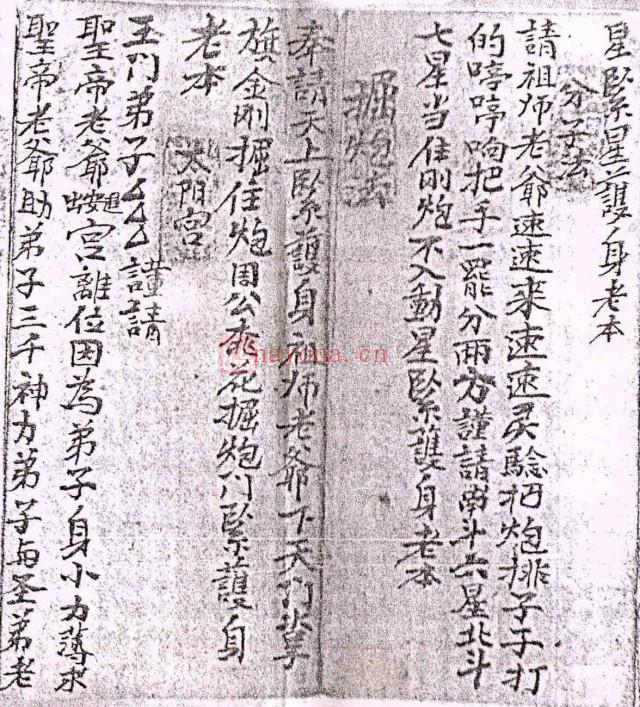 星緊星護身老本
分子法
請祖师老爺速速来速速灵驗把炮排子子打
的哼哼响把手一罷分兩方謹請南斗六星北斗
七星当住刚炮不入動星緊護身老本
掘炮法
奉請天上緊護身祖师老爺下天门拿
旗金刚掘住炮周公桃花掘炮门緊護身
老本
太阳宫
玉门弟子 謹請
聖帝老爺 宫離位因為弟子身小力薄求
聖帝老爺助弟子三千神力弟子与圣弟老
nayona.cn